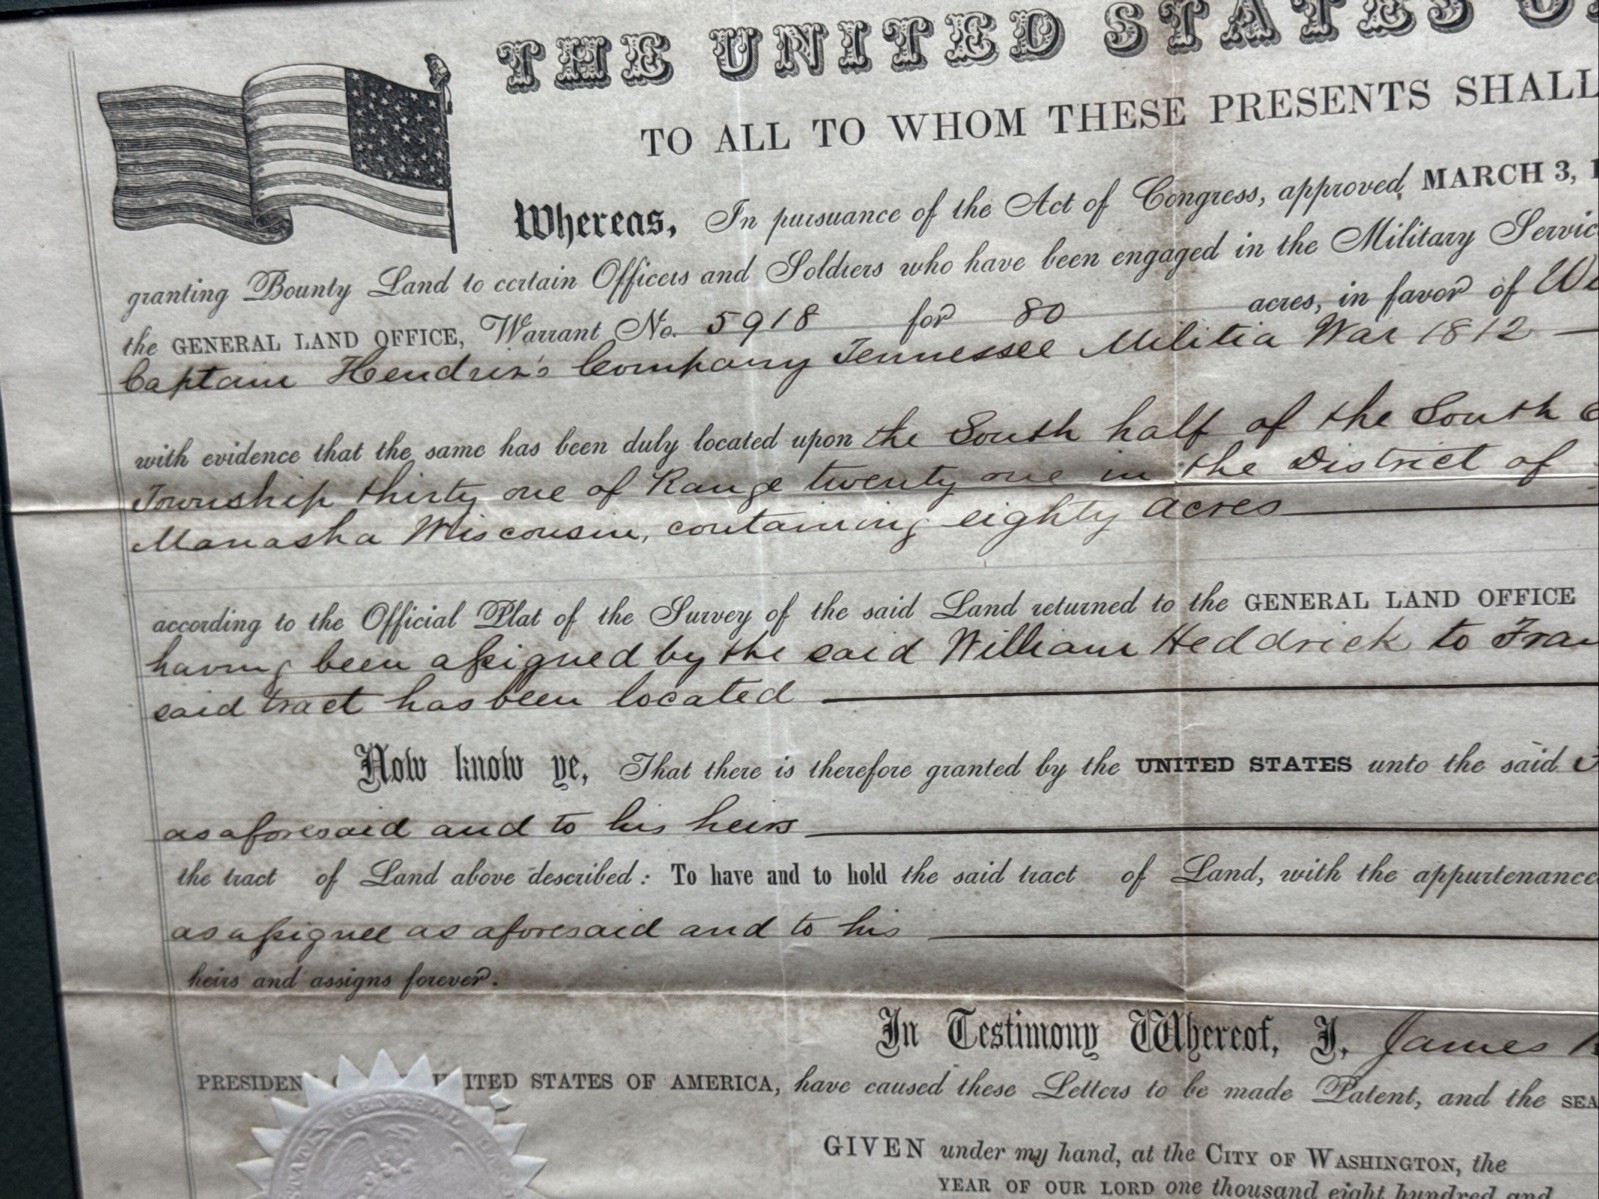 THE UNITED STATES
TO ALL TO WHOM THESE PRESENTS SHALL
Whereas, In pursuance of the Act of Congress, approved, MARCH 3,
granting Bounty Land to certain Officers and Soldiers who have been engaged in the Military
the GENERAL LAND OFFICE, Warrant No. 5918 for 80 acres, in favor of
Captain Hendrix's Company Tennessee Militia War 1812
with evidence that the same has been duly located upon the South half of the South
Township thirty one of Range twenty one in the District of
Manasha Wisconsin, containing eighty acres
according to the Official Plat of the Survey of the said Land returned to the GENERAL LAND OFFICE
having been assigned by the said William Heddrick to
said tract has been located
Now know ye, That there is therefore granted by the UNITED STATES unto the said
as aforesaid and to his heirs
the tract of Land above described: To have and to hold the said tract of Land, with the
as assignee as aforesaid and to his
heirs and assigns forever.
In Testimony Whereof, I, James
UNITED STATES OF AMERICA, have caused these Letters to be made Patent, and the
GENERAL
GIVEN under my hand, at the CITY OF WASHINGTON, the
YEAR OF OUR LORD one thousand eight hundred and